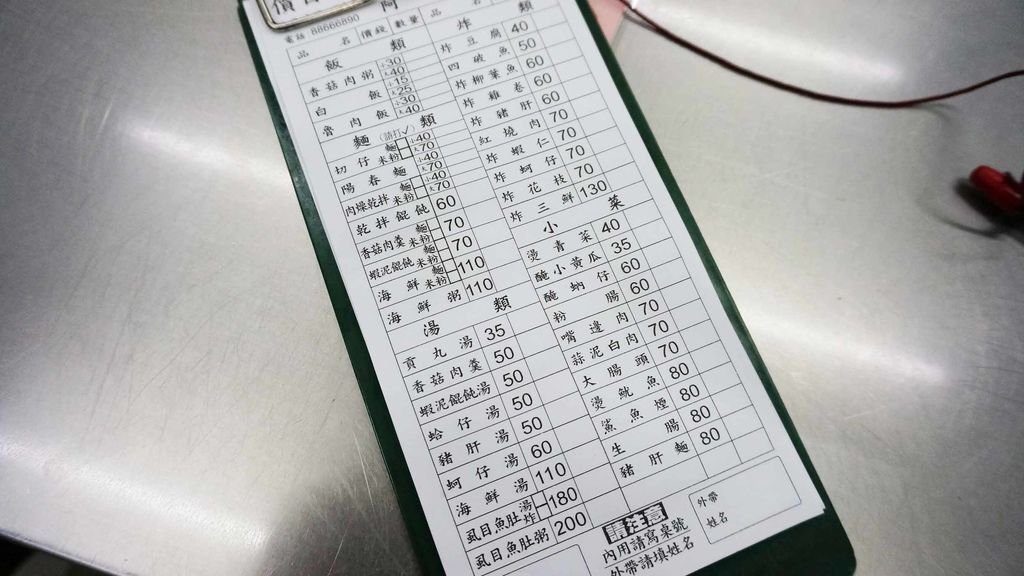 電話 88666890
品 名 價錢 數量 品 名
飯 類
香菇肉粥 30 40
白 飯 15 25
魯肉飯 30 40
麵 (請打✓) 類
切仔 麵 米粉 40 70
陽春麵 40 70
肉燥乾拌 麵 米粉 40 70
乾拌餛飩 60
香菇肉羹 麵 米粉 70
蝦泥餛飩 麵 米粉 70
海鮮 麵 米粉 110
海鮮粥 110
湯 類
貢丸湯 35
香菇肉羹 50
蝦泥餛飩湯 50
蛤仔湯 50
豬肝湯 50
蚵仔湯 60
海鮮湯 110
虱目魚肚 湯 炸 180
虱目魚肚粥 200
炸 類
炸豆腐 40
四破魚 50
炸柳葉魚 60
炸雞卷 60
炸豬肝 60
紅燒肉 70
炸蝦仁 70
炸蚵仔 70
炸花枝 70
炸三鮮 130
小 菜
燙青菜 40
醃小黃瓜 35
醃蚋仔 60
粉腸 60
嘴邊肉 70
蒜泥白肉 70
大腸頭 70
燙魷魚 80
鯊魚煙 80
生腸 80
豬肝麵 80
請注意
內用請寫桌號
外帶請填姓名
外帶
姓名